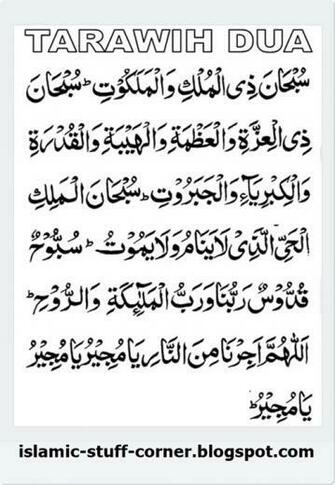 TARAWIH DUA
سُبْحَانَ ذِی الْمُلْكِ وَالْمَلَكُوْتِ ؕ سُبْحَانَ
ذِی الْعِزَّةِ وَالْعَظْمَةِ وَالْهَيْبَةِ وَالْقُدْرَةِ
وَالْكِبْرِيَآءِ وَالْجَبَرُوْتِ ؕ سُبْحَانَ الْمَلِكِ
الْحَیِّ الَّذِیْ لَا يَنَامُ وَلَا يَمُوْتُ ؕ سُبُّوْحٌ
قُدُّوْسٌ رَبُّنَا وَرَبُّ الْمَلٰٓئِكَةِ وَالرُّوْحِ ؕ
اَللّٰهُمَّ اَجِرْنَا مِنَ النَّارِ يَا مُجِيْرُ يَا مُجِيْرُ
يَا مُجِيْرُ ؕ
islamic-stuff-corner.blogspot.com